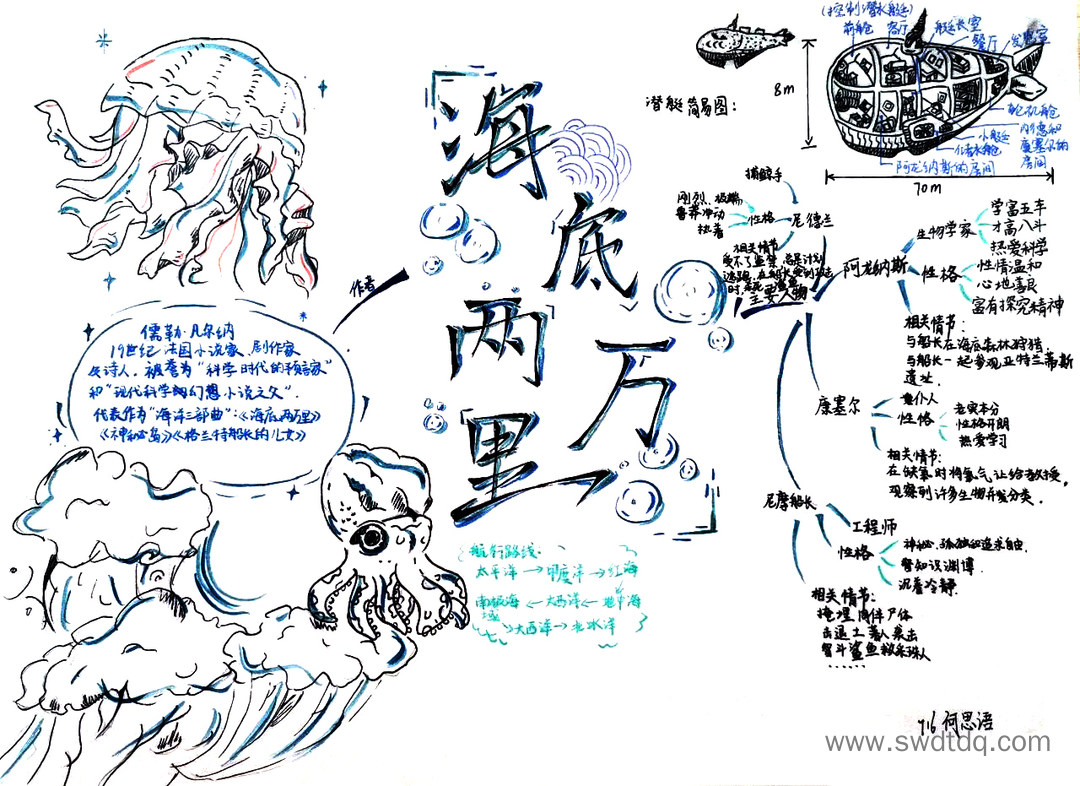 海底两万里
作者
儒勒·凡尔纳
19世纪法国小说家、剧作家
及诗人，被誉为“科学时代的预言家”
和“现代科学幻想小说之父”.
代表作为“海洋三部曲”：《海底两万里》
《神秘岛》《格兰特船长的儿女》
航行路线：
太平洋→印度洋→红海
南极海←大西洋←地中海
大西洋→北冰洋
潜艇简易图：
8m
70m
(控制潜水艇)
前舱
客厅
艇长室
餐厅
轮机舱
小艇
储水舱
内德和
康塞尔的
房间
阿龙纳斯的房间
主要人物
尼德兰
捕鲸手
性格
刚烈、极端
鲁莽冲动
执着
相关情节
受不了监禁，总是计划
逃跑，在船长受到攻击
阿龙纳斯
生物学家
学富五车
才高八斗
热爱科学
性格
性情温和
心地善良
富有探究精神
相关情节：
与船长在海底森林狩猎，
与船长一起参观亚特兰蒂斯
遗址.
康塞尔
仆人
性格
老实本分
性格开朗
热爱学习
相关情节：
在缺氧时将氧气让给教授，
观察到许多生物并分类.
尼摩船长
工程师
性格
神秘、孤独却追求自由
知识渊博
沉着冷静.
相关情节：
掩埋同伴尸体
击退土著人袭击
智斗鲨鱼救采珠人
······
716 何思语
www.swdtdq.com